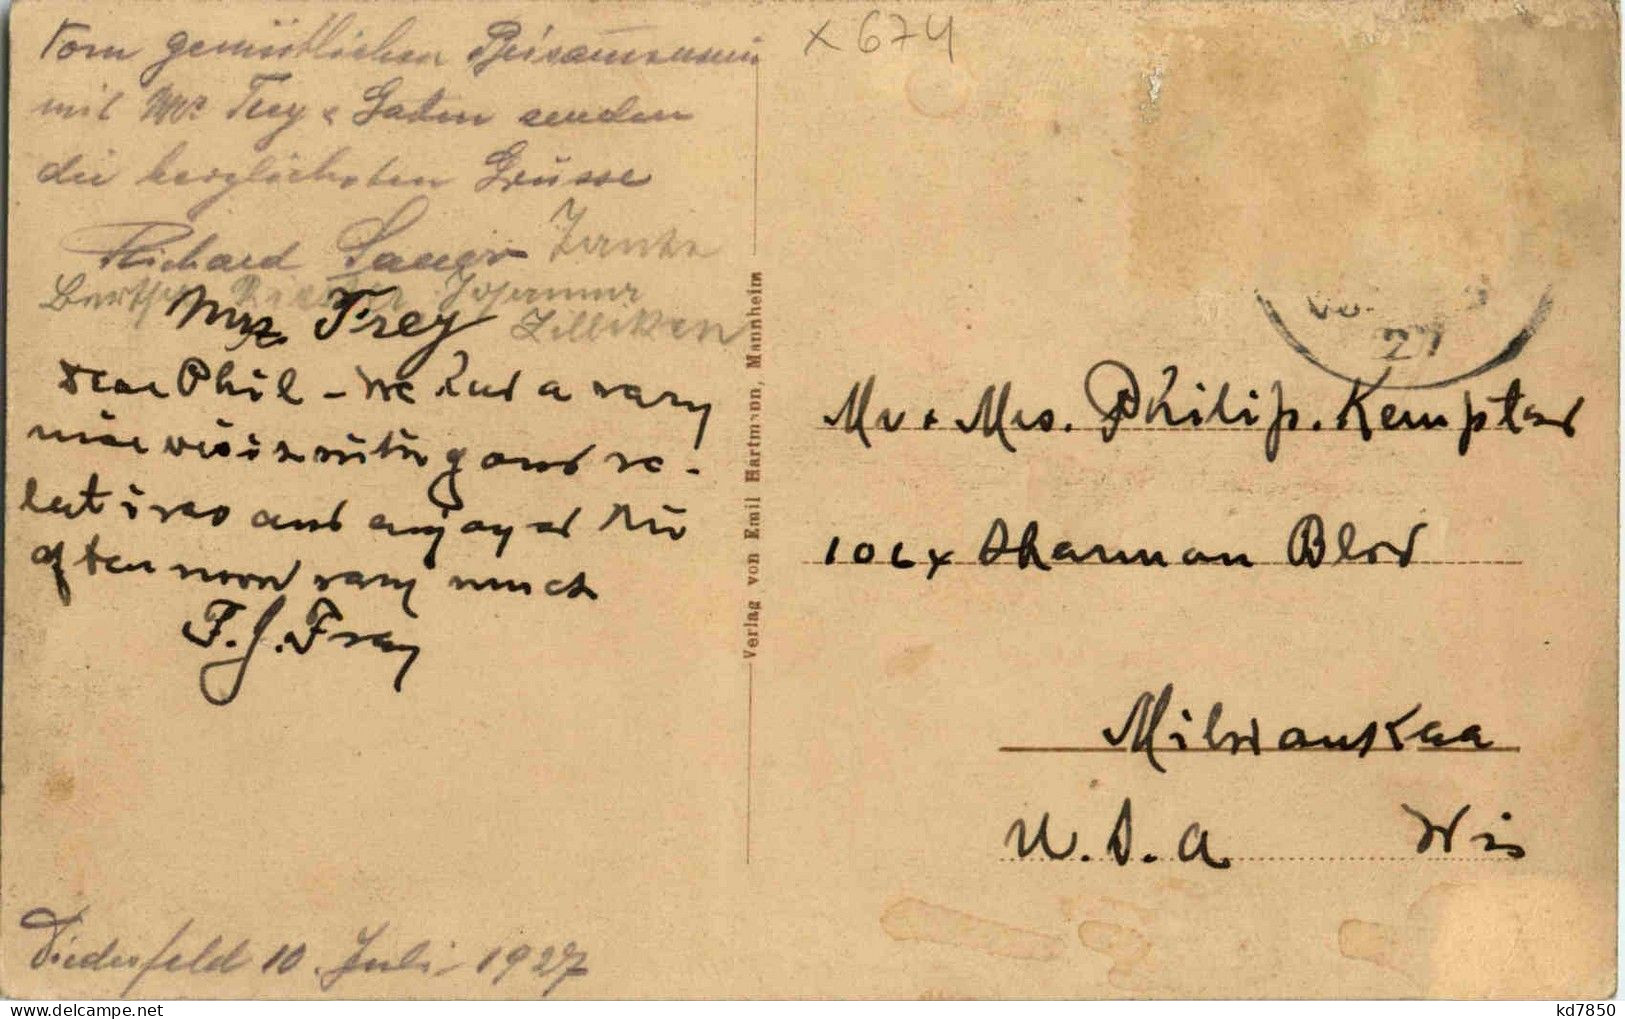 Vom gemütlichen Beisammensein
mit Mr Frey & Gattin senden
die herzlichsten Grüsse
Richard Sauer
Bertha Johanna
Zilliken
Mrs. Frey
Dear Phil - We had a very
nice visit with your re-
latives and enjoyed the
afternoon very much
F. J. Frey
Diedesfeld 10. Juli 1927
Verlag von Emil Hartmann, Mannheim
x 674
27
Mr + Mrs. Philip. Kempter
Sherman Blvd
Milwaukee
U. S. A. Wis
kd7850